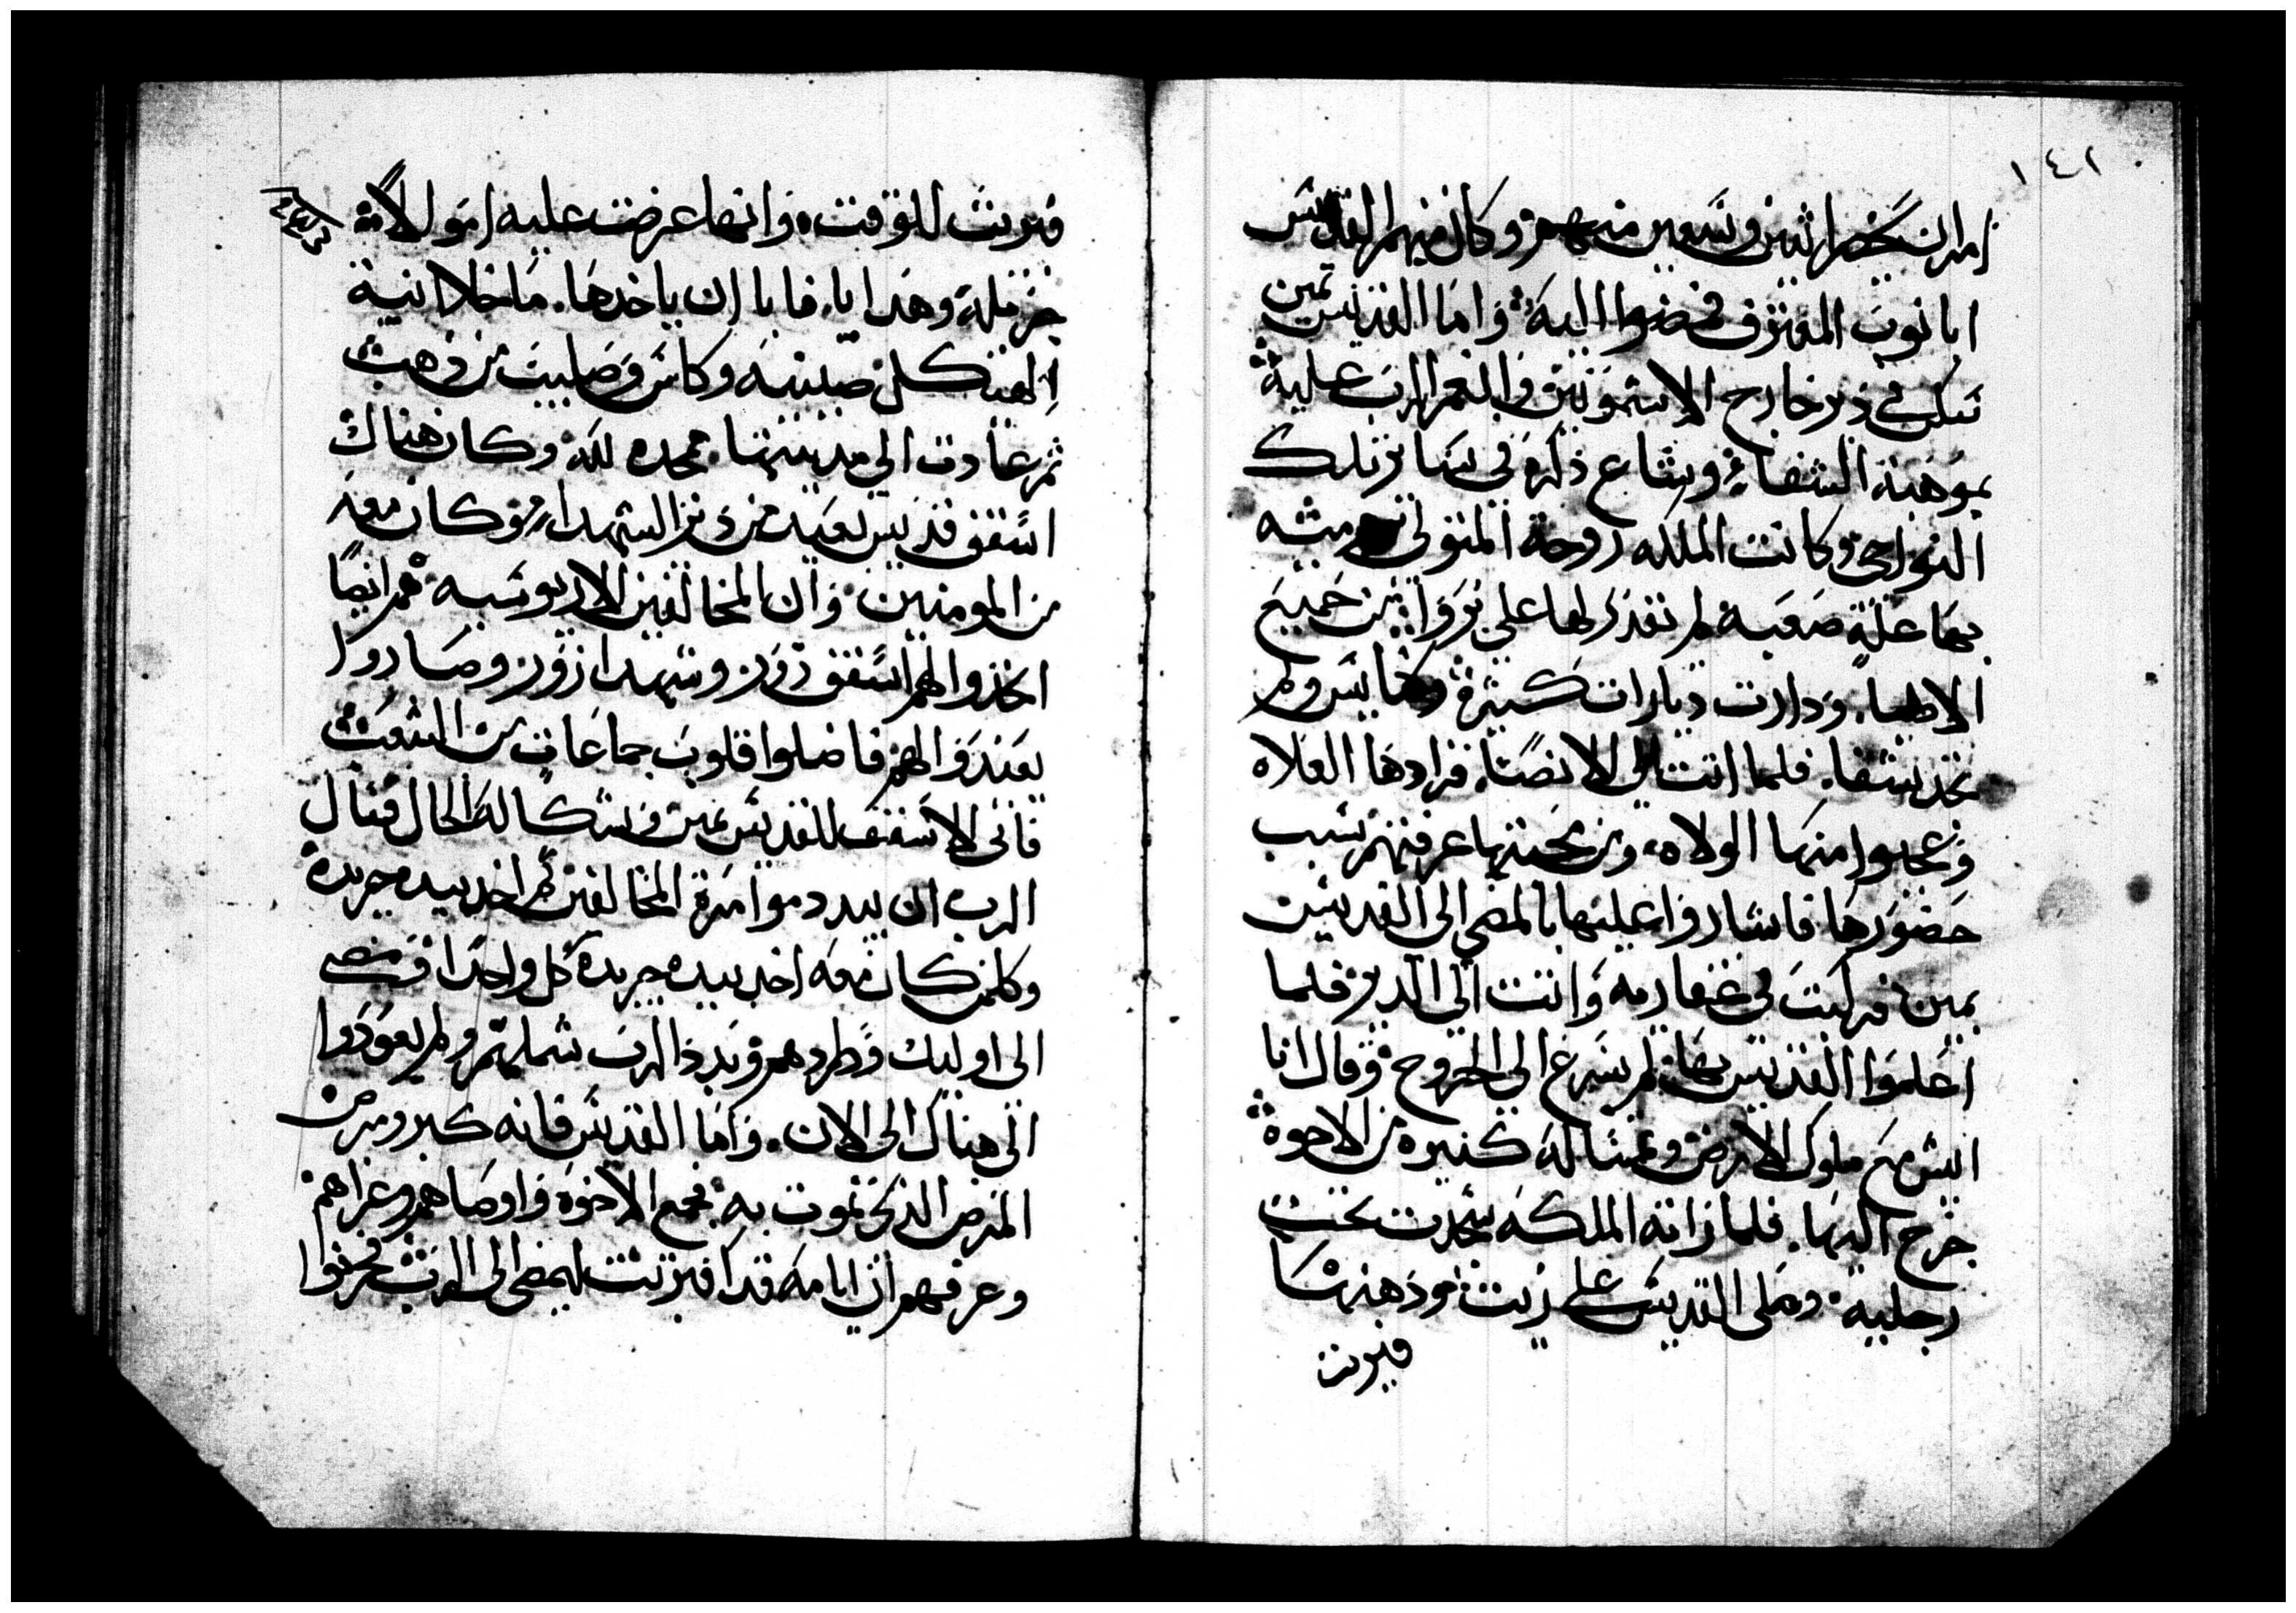 ١٤١
امر ان يحضر اثنين وسبعين منهم وكان منهم القديس
ابا نوب المعترف فمضوا اليه واما القديس بمين
سكن في دير خارج الاشمونين وانعم الرب عليه
بموهبة الشفاء وشاع ذكره في ساير تلك
النواحي وكانت الملكه زوجة المتولي
بها علة صعبه لم تقدر لها على بروا من جميع
الاطبا. ودارت ديارات كثيرة وكنايس ولم
تجد شفا. فلما اتت الي الانصنا. فزادوها العلاه
وعجبوا منها الولاه، ومن محبتها عرفتهم بسبب
حضورها فاشاروا عليها بالمضي الى القديس
بمين فركبت في عشاريه واتت الي الدير فلما
اعلموا القديس بها لم يسرع الى الخروج وقال انا
ايش مع ملوك الارض وبمسالة كثيره من الاخوة
خرج اليها. فلما راته الملكه سجدت تحت
رجليه وصلى القديس على زيت ودهنها
فبريت
فبريت للوقت، وانها عرضت عليه امولاً
جزيله وهدايا. فابا ان ياخدها. ما خلا انية
الهيكل صينيه وكاس وصليب من دهب
ثم عادت الي مدينتها ممجده لله وكان هناك
اسقف قديس بعيد من دير الشهداء وكان معه
من المومنين وان المخالفين الاريوسيه هم ايضاً
اخذوا لهم اسقف زور وشهدا زور وصاروا
يعيدوا لهم فاضلوا قلوب جماعات من الشعب
فاتى الاسقف للقديس بمين وشكا له الحال فسال
الرب ان يبدد موامرة المخالفين ثم اخد بيده جريده
وكلمن كان معه اخد بيده جريده كل واحدا ومضى
الى اوليك وطردهم وبدد الرب شملهم ولم يعودوا
الى هناك الى الان. واما القديس فانه كبر ومرض
المرض الذى تموت به فجمع الاخوه واوصاهم وعزاهم
وعرفهم ان ايامه قد اقتربت ليمضى الى الرب فحزنوا